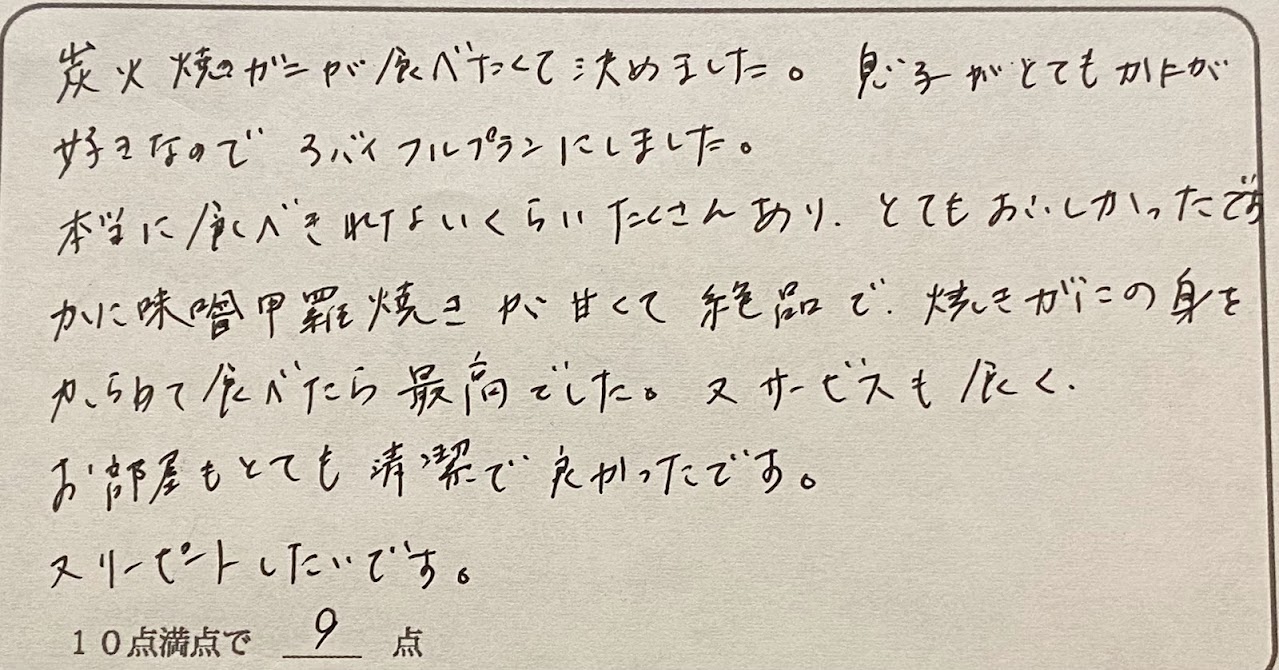 炭火焼きガニが食べたくて決めました。息子がとてもかにが
好きなので3バイフルプランにしました。
本当に食べきれないくらいたくさんあり、とてもおいしかったです
かに味噌甲羅焼きが甘くて絶品で、焼きがにの身を
からめて食べたら最高でした。又サービスも良く、
お部屋もとても清潔で良かったです。
又リピートしたいです。
10点満点で 9 点